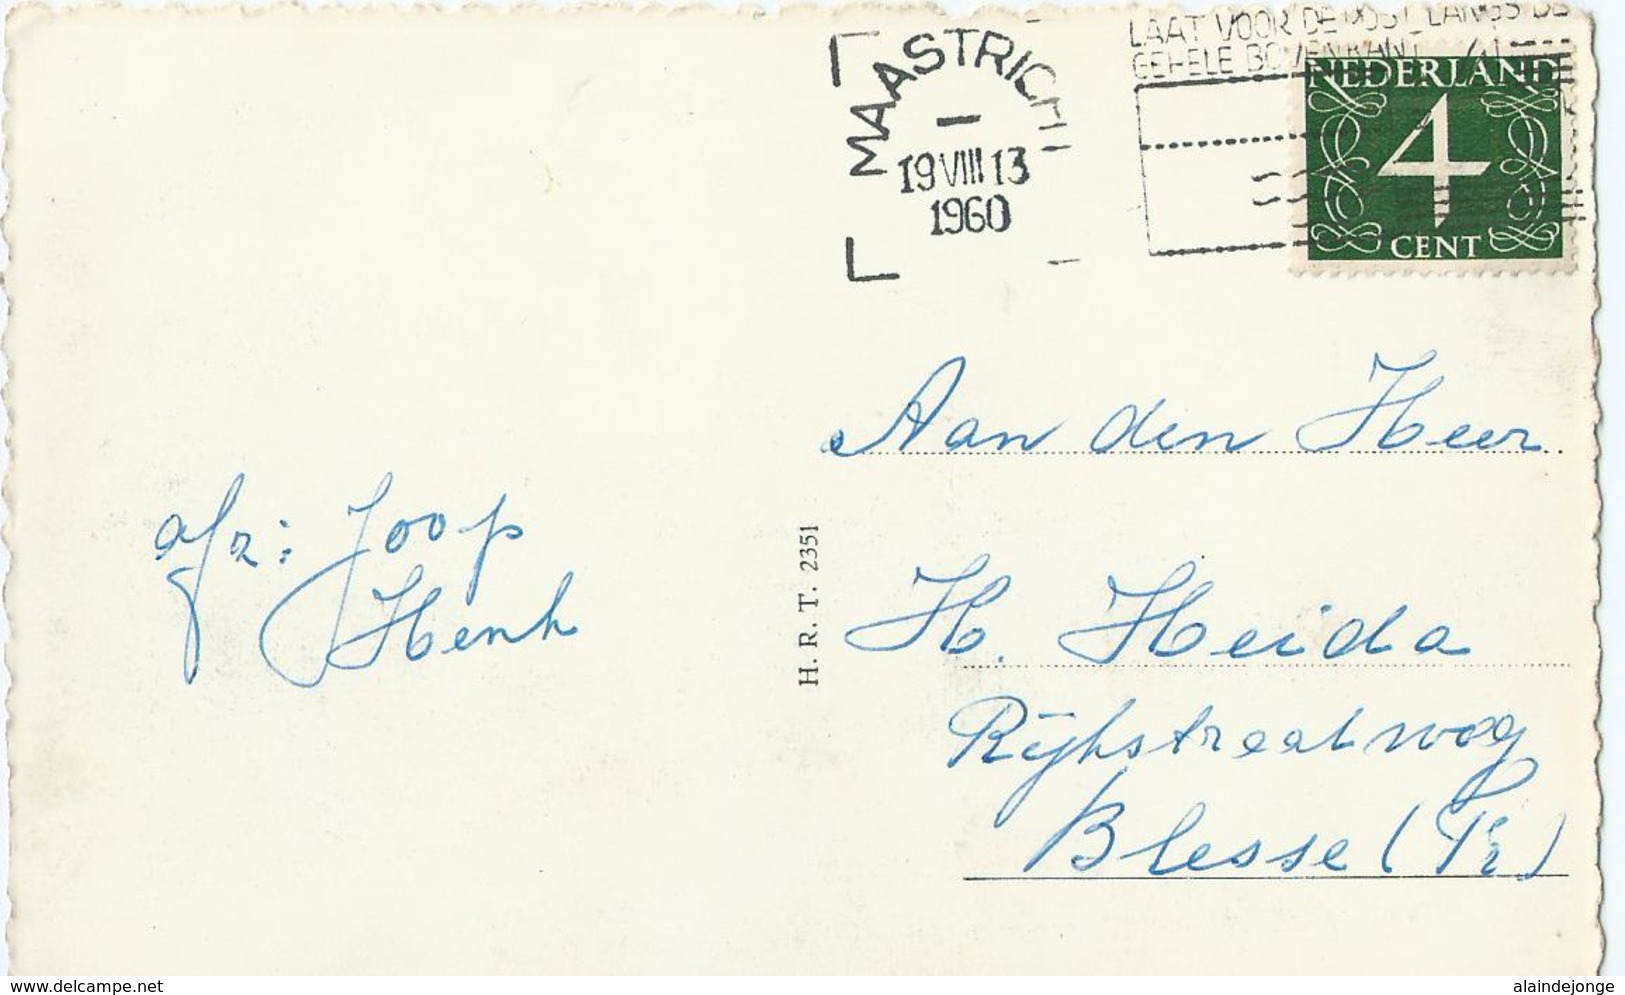 MAASTRICHT
19 VIII 13
1960
LAAT VOOR DE POST LANGS DE
GEHELE BOVENKANT
NEDERLAND
4
CENT
afz: Joop
Henk
H. R. T. 2351
Aan den Heer
H. Heida
Rijkstraatweg
Blesse (Fr)
www.delcampe.net
alaindejonge